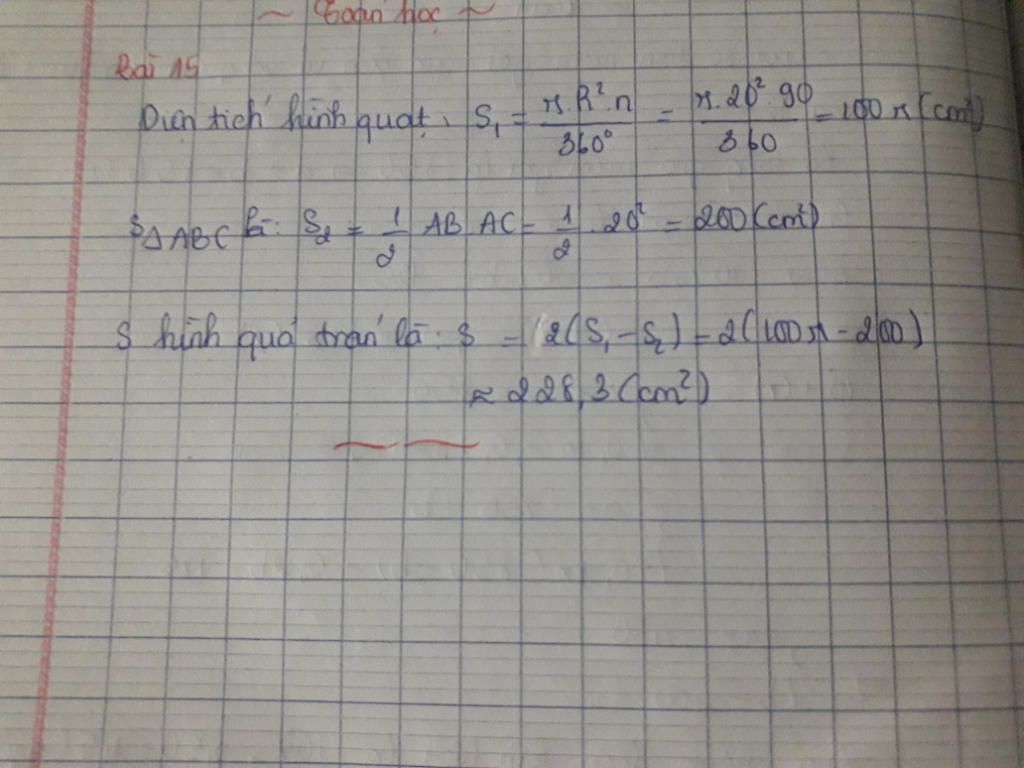 ~ Toán học ~
Bài 15
Diện tích hình quạt. S₁ = π.R².n / 360° = π.20².90 / 360 = 100π (cm²)
S△ABC là: S₂ = 1/2 AB AC = 1/2 . 20² = 200 (cm²)
S hình quả trám là: S = 2(S₁ - S₂) = 2(100π - 200)
≈ 228,3 (cm²)